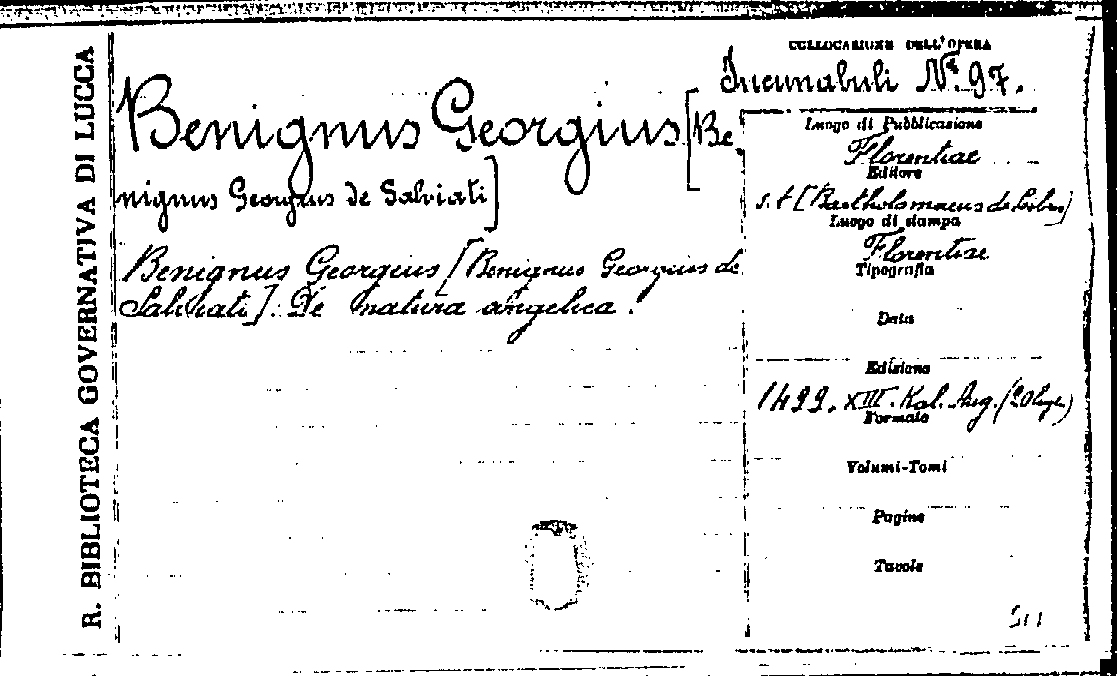 R. BIBLIOTECA GOVERNATIVA DI LUCCA
COLLOCAZIONE DELL'OPERA
Incunabuli Nº. 97.
Benignus Georgius [Be
nignus Georgius de Salviati]
Benignus Georgius [Benignus Georgius de
Salviati]. De natura angelica.
Luogo di Pubblicazione
Florentiae
Editore
s. t [Bartholomaeus de Libris]
Luogo di stampa
Florentiae
Tipografia
Data
Edizione
1499. XIII. Kal. Aug. (20 lugl.)
Formato
Volumi-Tomi
Pagine
Tavole